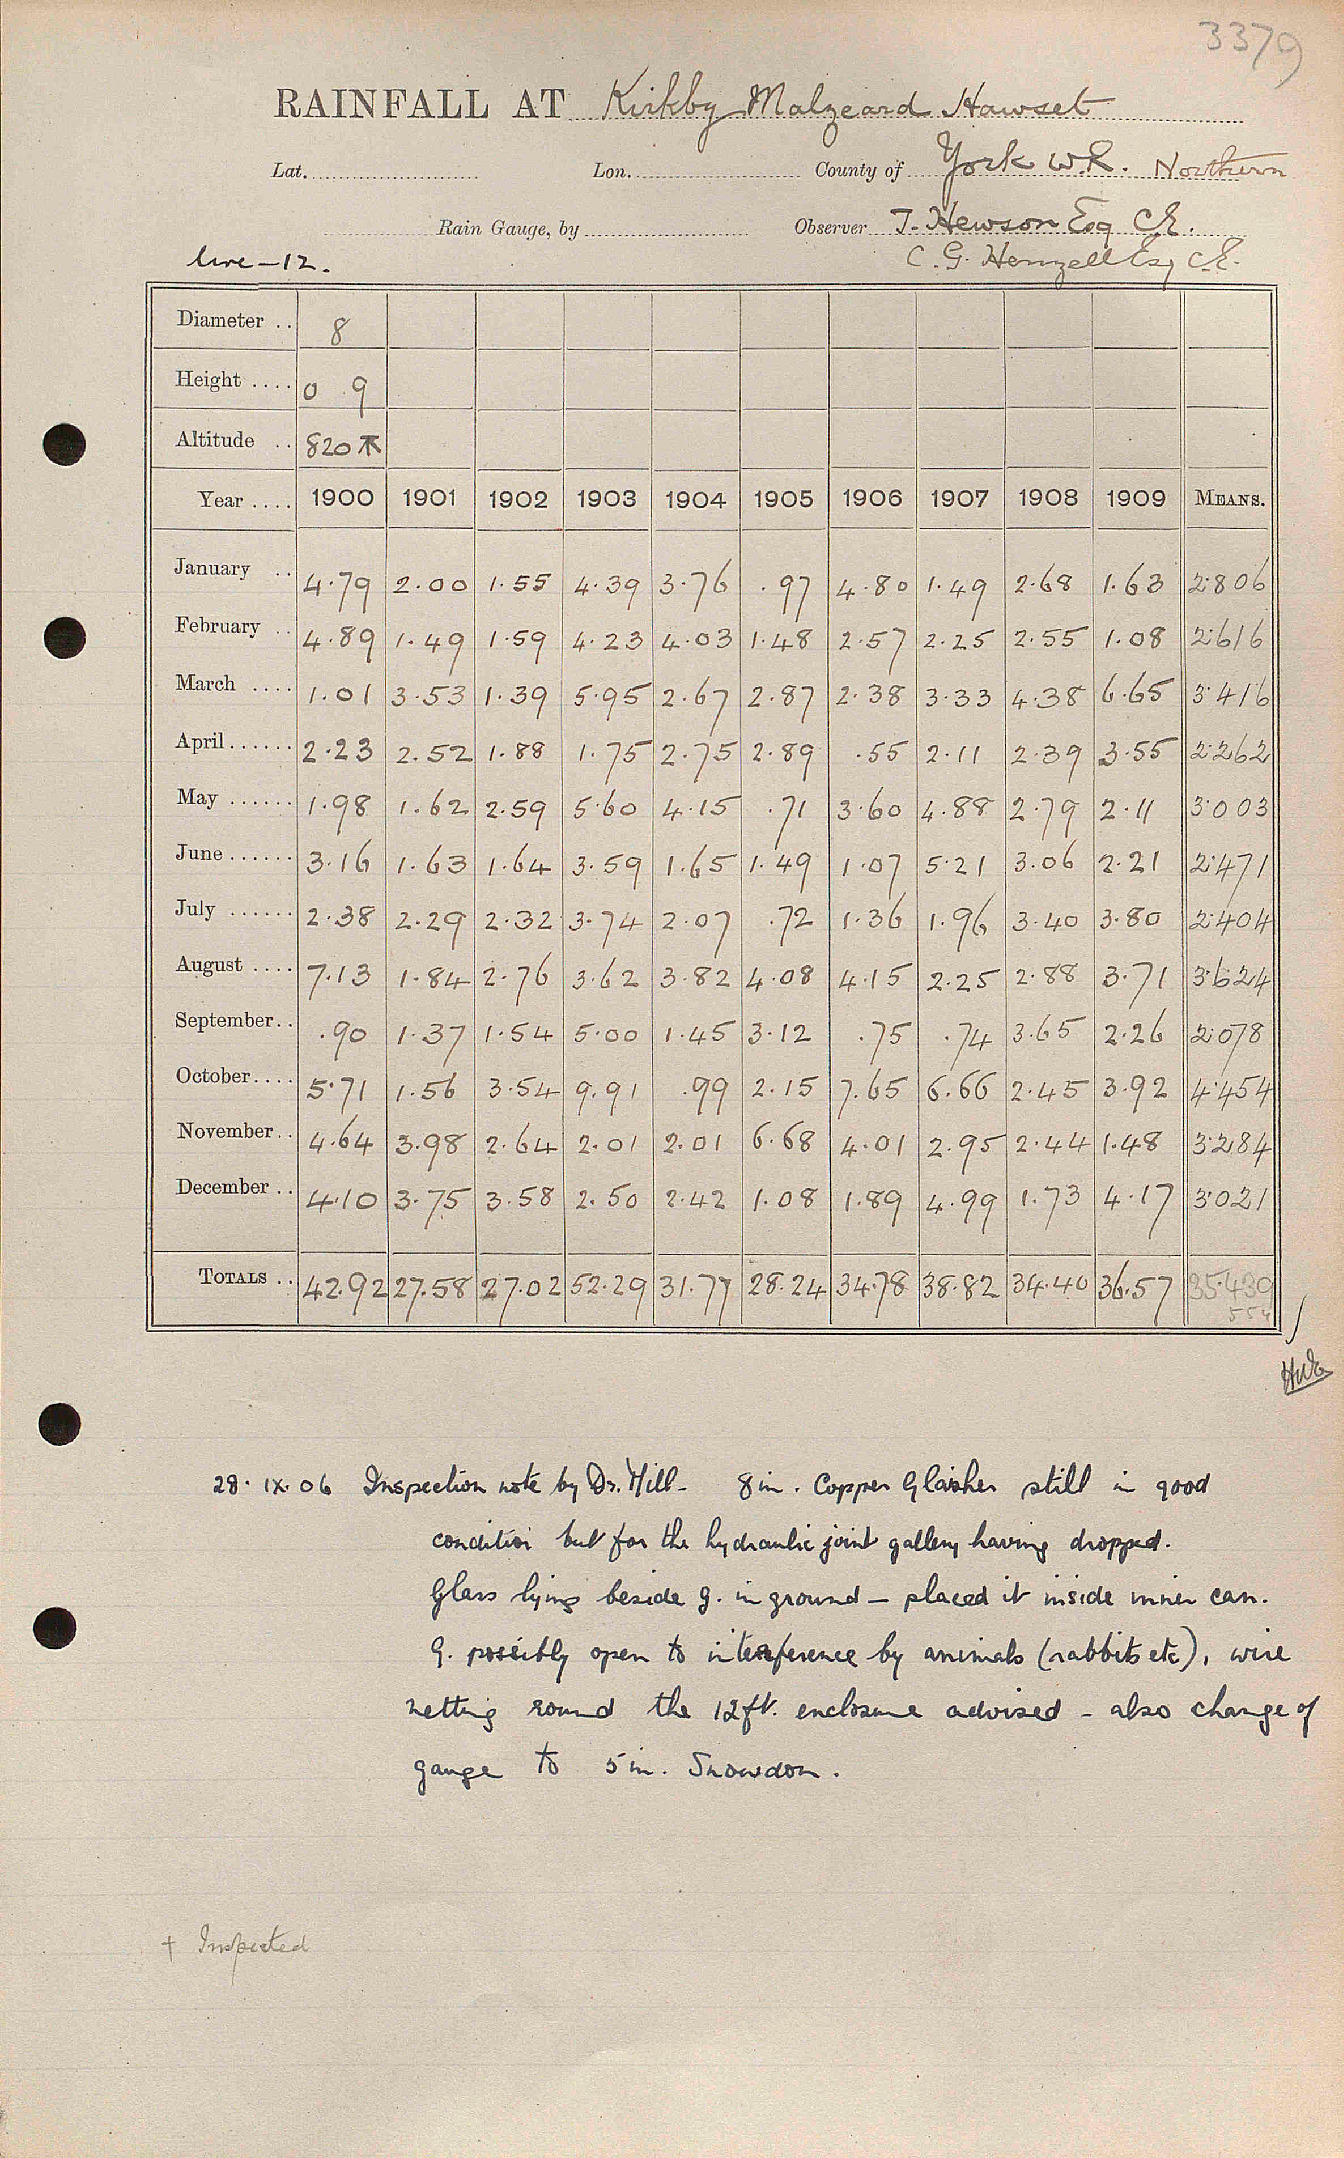 3379
RAINFALL AT Kirkby Malzeard Hawset
Lat. Lon. County of York W.R. Northern
Rain Gauge, by Observer T. Hewson Esq C.E.
Ure-12. C. G. Henzell Esq C.E.
Diameter .. 8
Height .... 0 9
Altitude .. 820
Year .... 1900 1901 1902 1903 1904 1905 1906 1907 1908 1909 MEANS.
January .. 4.79 2.00 1.55 4.39 3.76 .97 4.80 1.49 2.68 1.63 2.806
February .. 4.89 1.49 1.59 4.23 4.03 1.48 2.57 2.25 2.55 1.08 2.616
March .... 1.01 3.53 1.39 5.95 2.67 2.87 2.38 3.33 4.38 6.65 3.416
April ...... 2.23 2.52 1.88 1.75 2.75 2.89 .55 2.11 2.39 3.55 2.262
May ...... 1.98 1.62 2.59 5.60 4.15 .71 3.60 4.88 2.79 2.11 3.003
June ...... 3.16 1.63 1.64 3.59 1.65 1.49 1.07 5.21 3.06 2.21 2.471
July ...... 2.38 2.29 2.32 3.74 2.07 .72 1.36 1.96 3.40 3.80 2.404
August .... 7.13 1.84 2.76 3.62 3.82 4.08 4.15 2.25 2.88 3.71 3.624
September.. .90 1.37 1.54 5.00 1.45 3.12 .75 .74 3.65 2.26 2.078
October.... 5.71 1.56 3.54 9.91 .99 2.15 7.65 6.66 2.45 3.92 4.454
November.. 4.64 3.98 2.64 2.01 2.01 6.68 4.01 2.95 2.44 1.48 3.284
December .. 4.10 3.75 3.58 2.50 2.42 1.08 1.89 4.99 1.73 4.17 3.021
TOTALS .. 42.92 27.58 27.02 52.29 31.77 28.24 34.78 38.82 34.40 36.57 35.439
28.IX.06 Inspection note by Dr. Mill - 8 in. Copper Glaisher still in good
condition but for the hydraulic joint gallery having dropped.
Glass lying beside g. in ground - placed it inside inner can.
G. possibly open to interference by animals (rabbits etc), wire
netting round the 12ft. enclosure advised - also change of
gauge to 5 in. Snowdon.
† Inspected